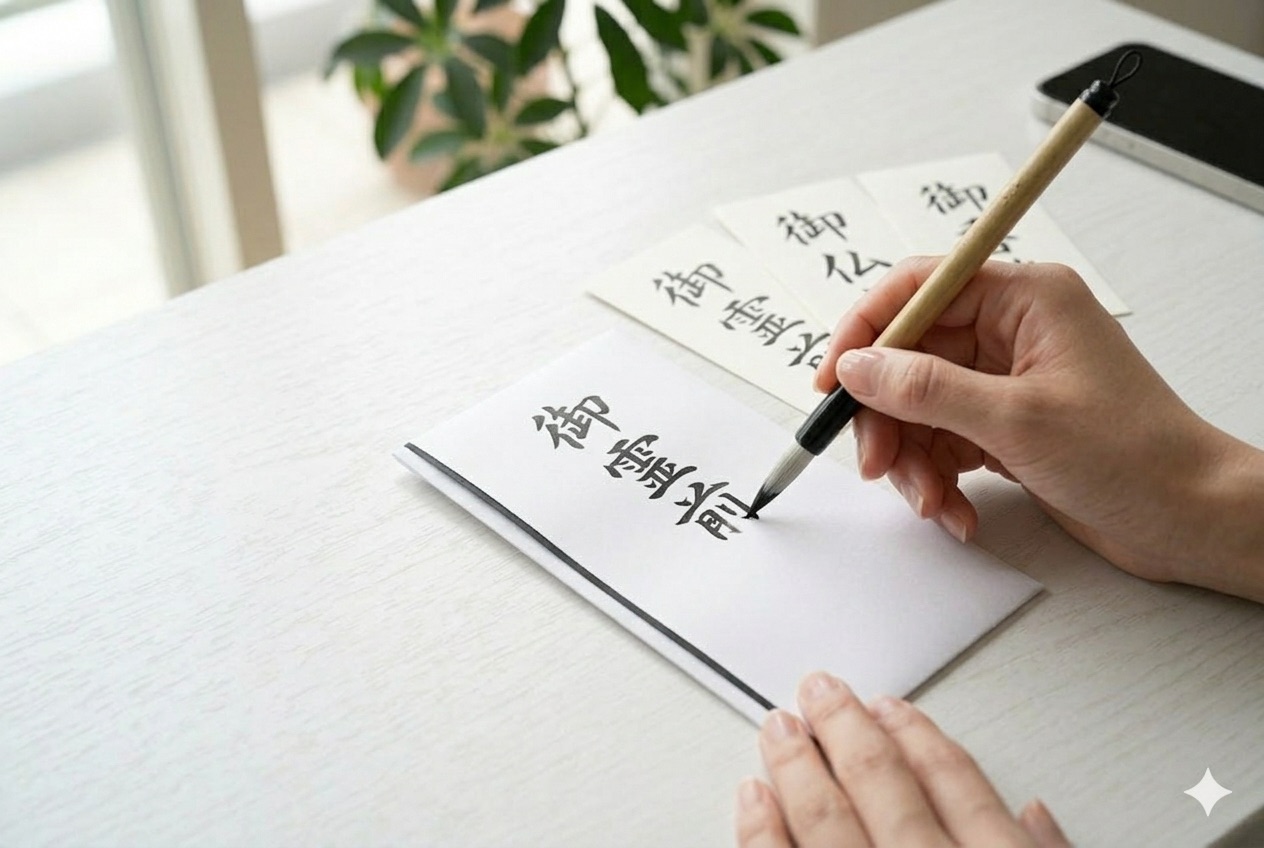 御霊前
御霊前
御仏
御